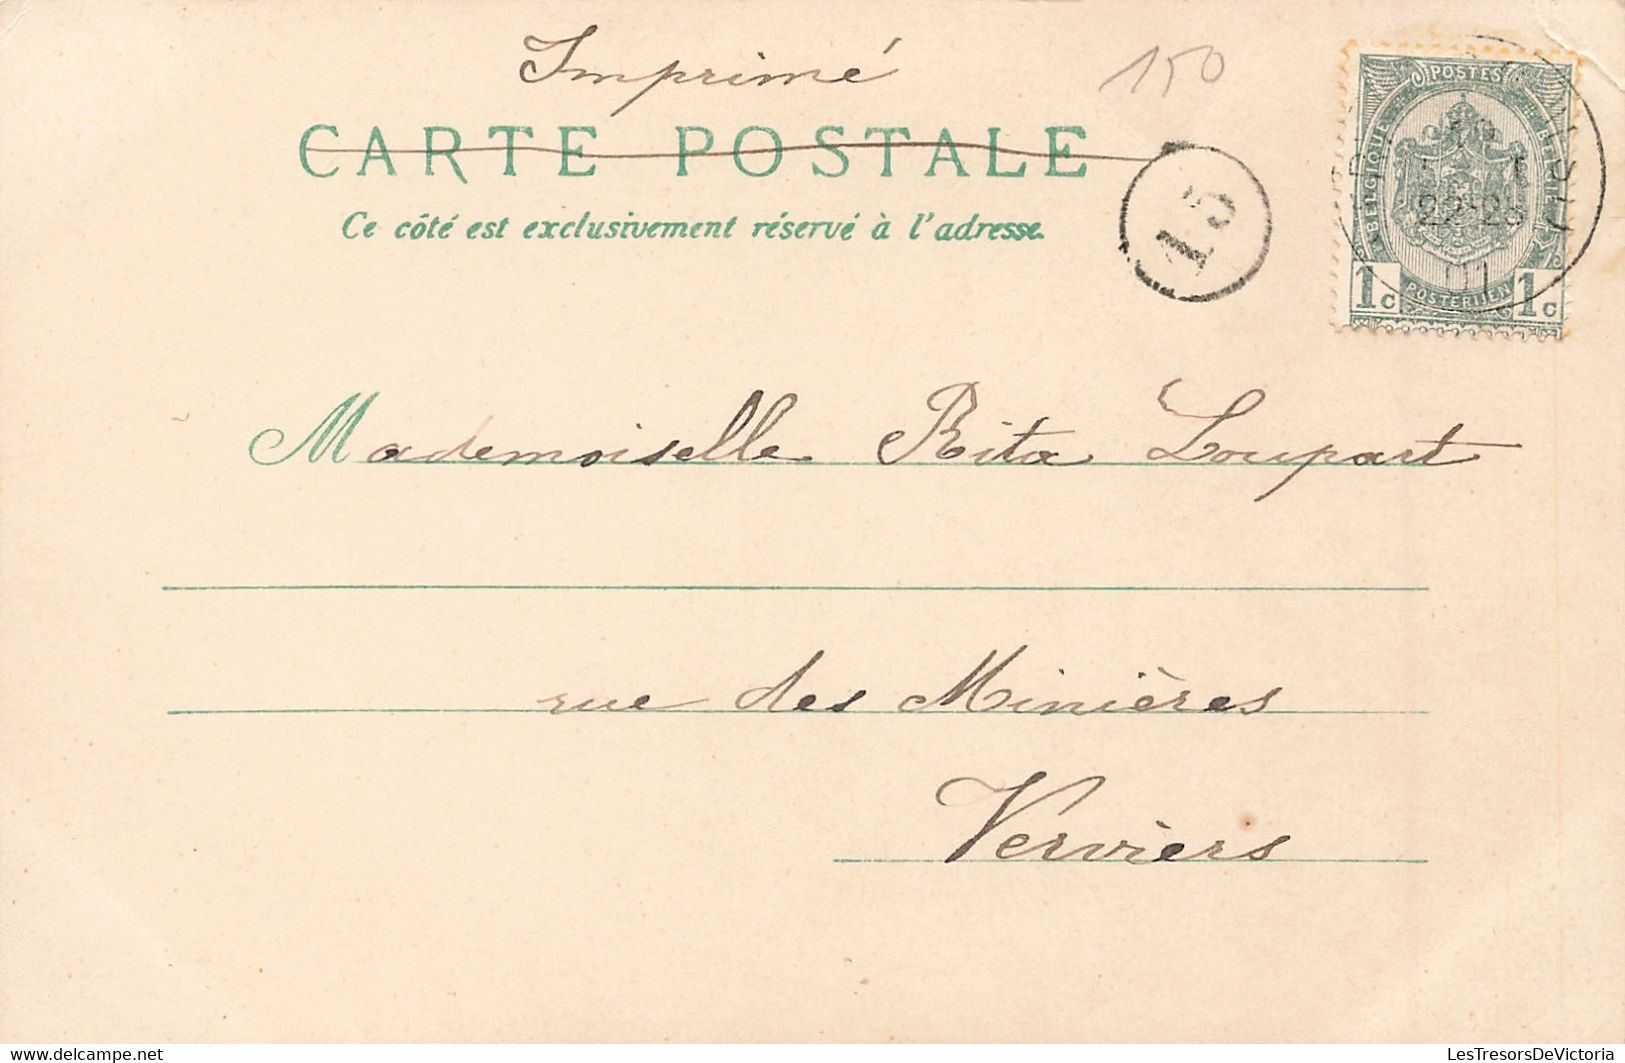 Imprimé
150
CARTE POSTALE
Ce côté est exclusivement réservé à l'adresse.
15
POSTES
BELGIQUE
BELGIË
22-23
01
1c POSTERIJEN 1c
Mademoiselle Rita Loupart
rue des Minières
Verviers
LesTresorsDeVictoria
LesTresorsDeVictoria.com